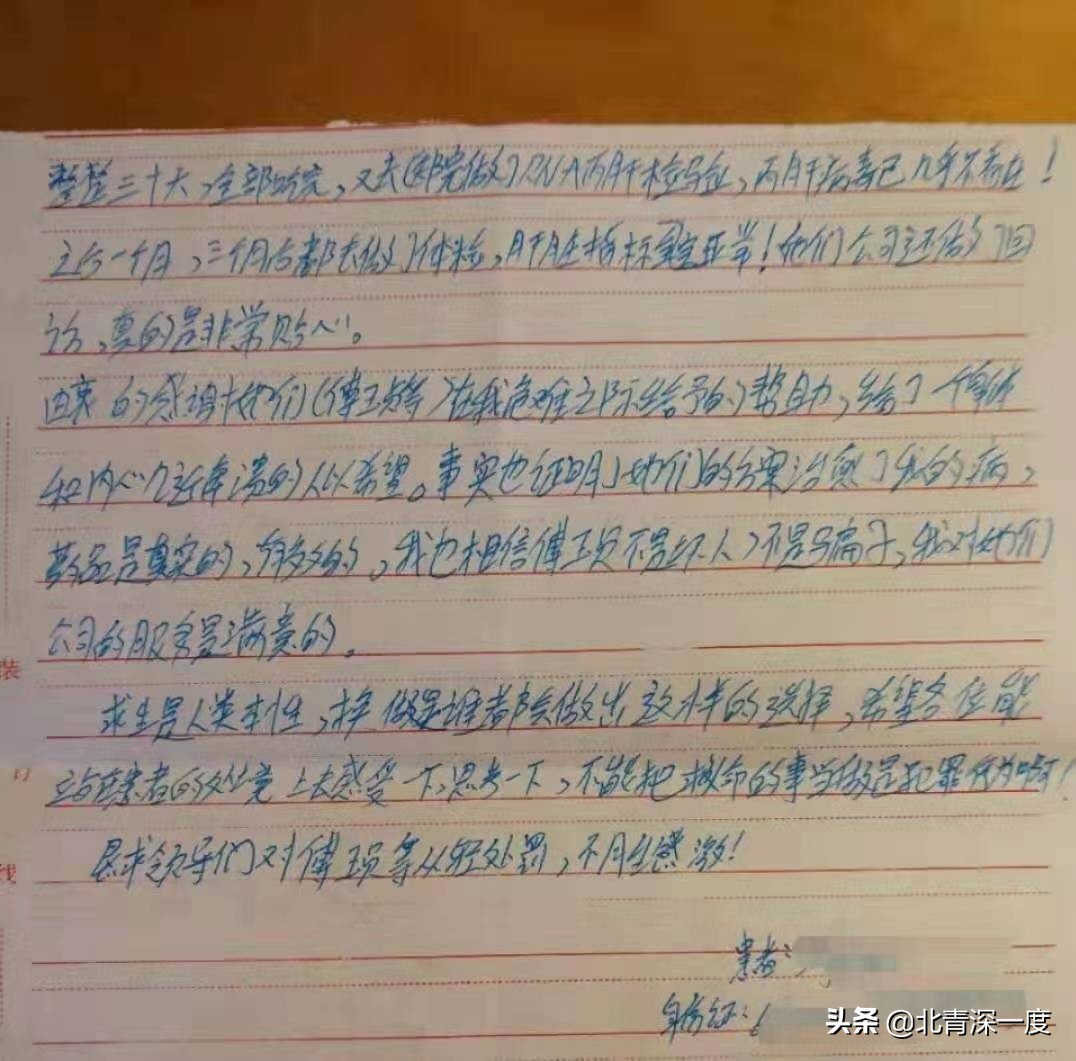 整整三十天，全部吃完，又去医院做了RNA丙肝检验，丙肝病毒已几乎不存在！
之后一个月，三个月后都去做了体检，肝脏指标完全正常！她们公司还做了回
访，真的是非常贴心。
由衷的感谢她们（傅玉贞等）在我危难之际给予的帮助，给了一个身体
和内心 的人以希望。事实也证明了她们的方案治愈了我的病，
药品是真实的，有效的，我也相信傅 不是坏人，不是骗子，我对她们
公司的服务是满意的。
求生是人类本性，换做是谁都会做出这样的选择，希望各位能
站在患者的处境上去感受一下，思考一下，不能把救命的事当做是犯罪行为啊！
恳求领导们对傅 等从轻处罚，不胜感激！
患者：
身份证：
装
订
线
头条 @北青深一度